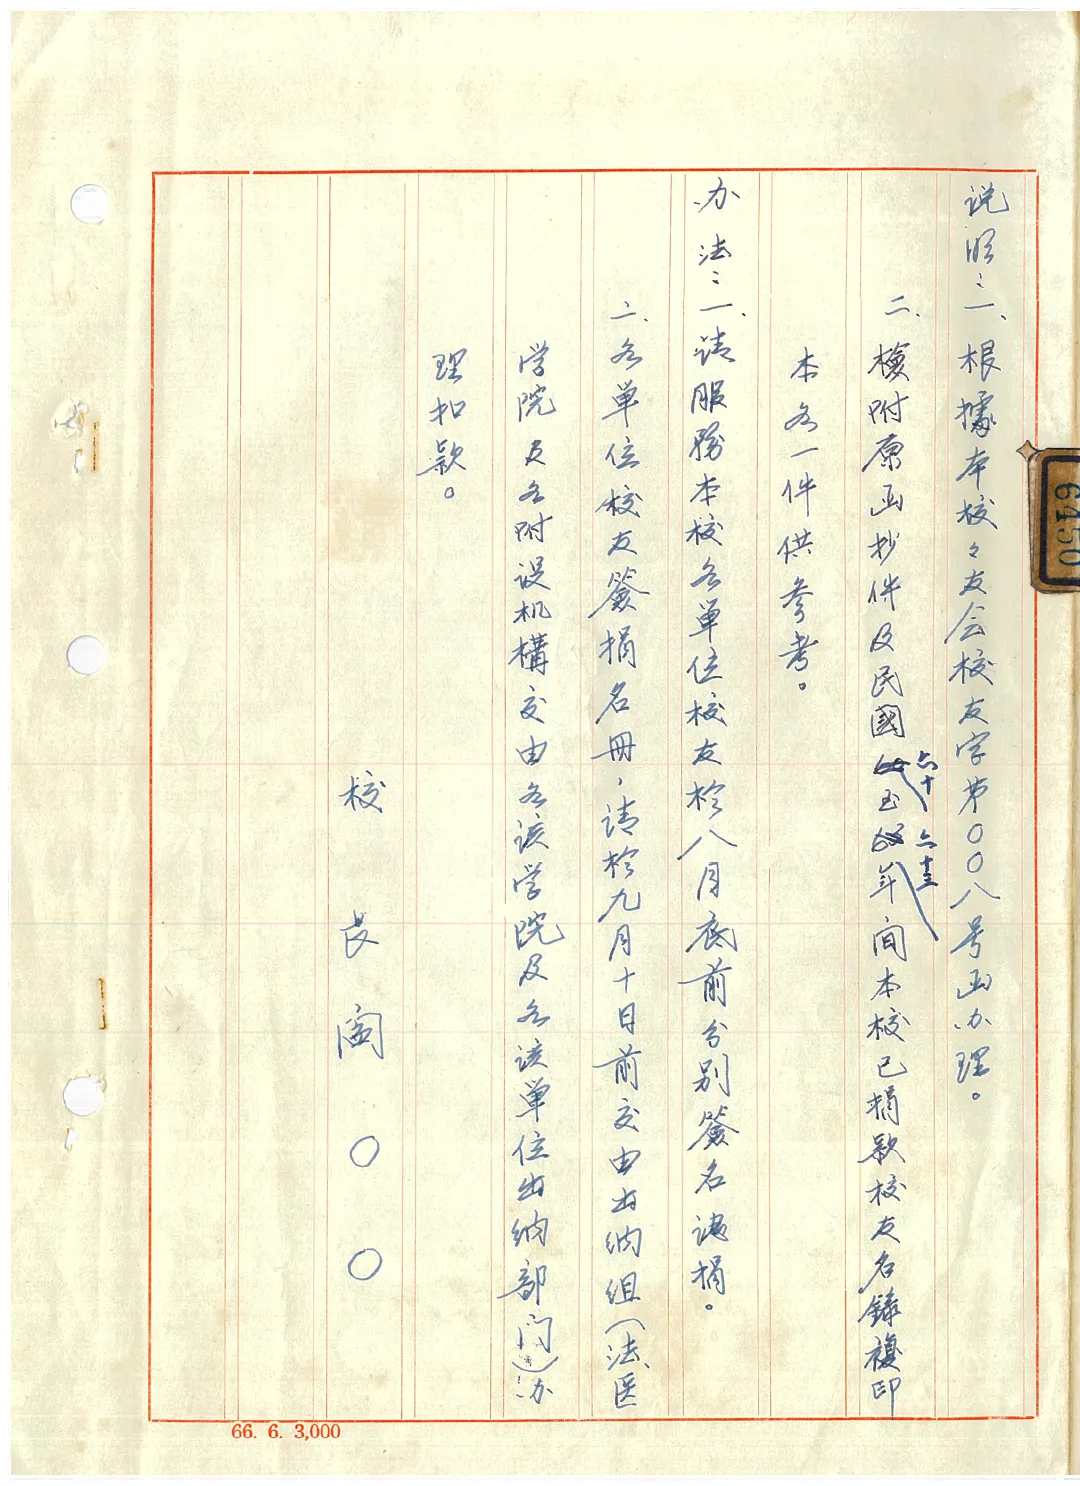 说明：一、根據本校々友会校友字第００八号函办理。
二、檢附原函抄件及民國六十至六十三年间本校已捐款校友名錄複印
本各一件供參考。
办法：一、请服務本校各单位校友於八月底前分别簽名認捐。
二、各单位校友簽捐名冊，请於九月十日前交由出纳组（法、医
学院及各附设机構交由各该学院及各该单位出纳部门）办
理扣款。
校长阎〇〇
66. 6. 3,000
6450